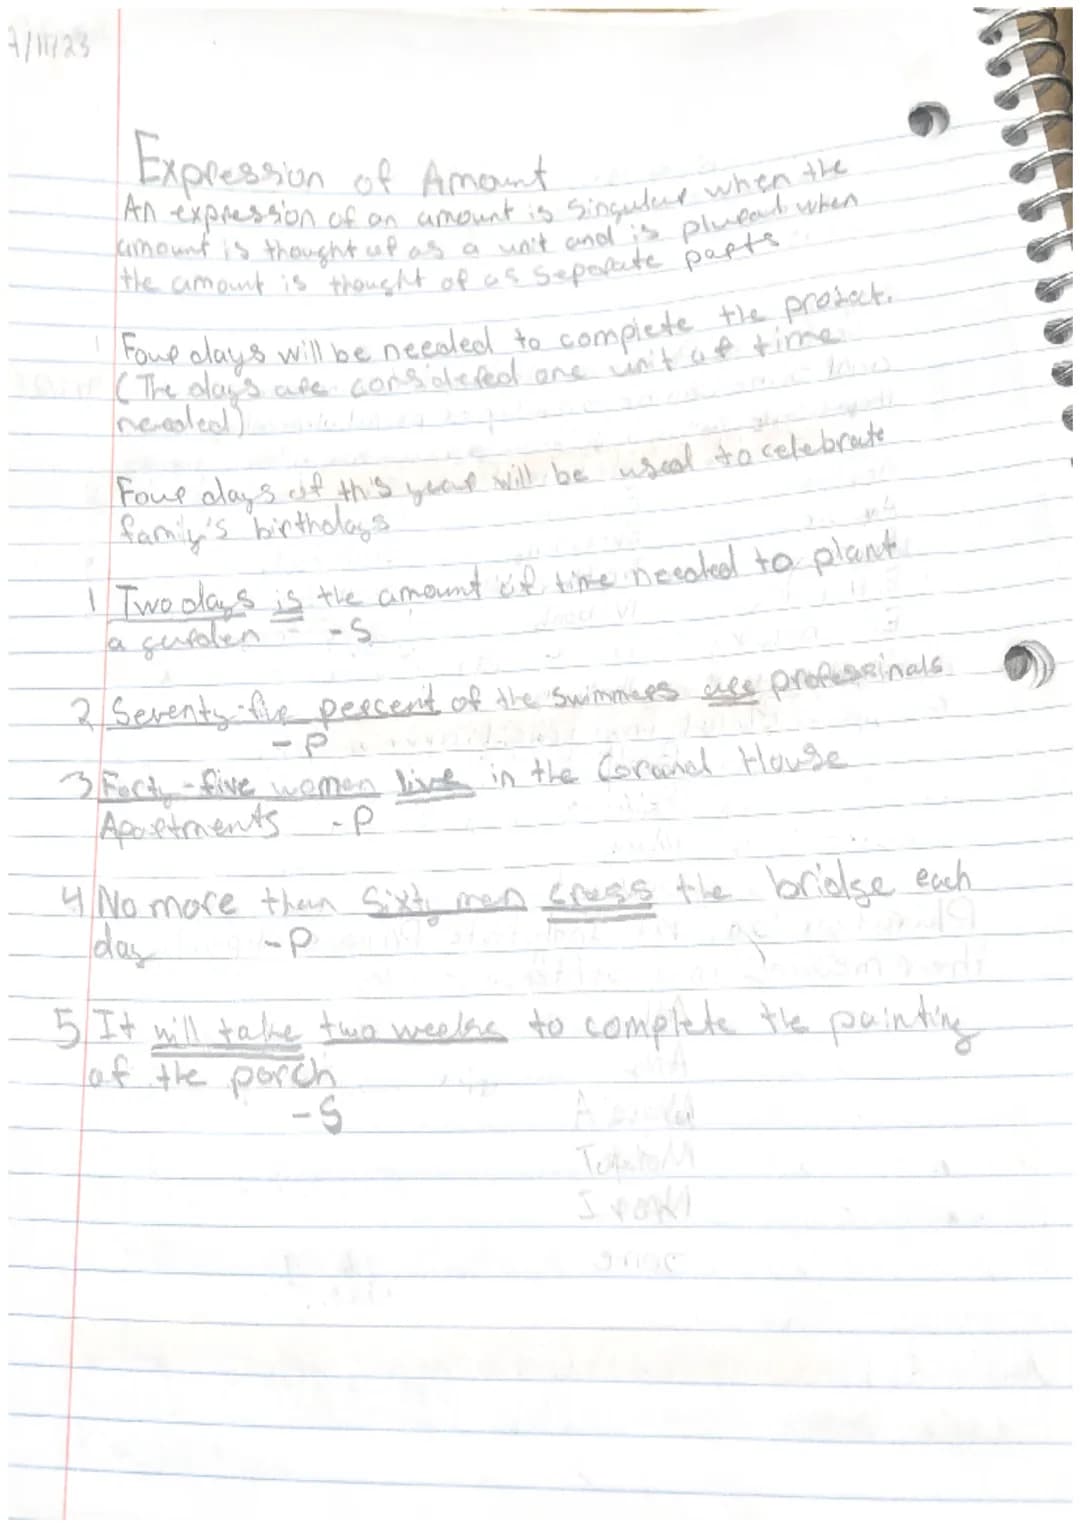 7/11/23
Expression of Amount
An expression of an amount is singular when the
amount is thought of as a unit and is plural when
the amount is thought of as separate parts
1 Four days will be needed to complete the project.
(The days are considered one unit of time
needed)
Four days of this year will be used to celebrate
family's birthdays
1 Two days is the amount of time needed to plant
a garden - S
2 Seventy-five percent of the swimmers are professinals
- P
3 Forty-five women live in the House
Apartments - P
4 No more than sixty men cross the bridge each
day - P
5 It will take two weeks to complete the painting
of the porch
- S